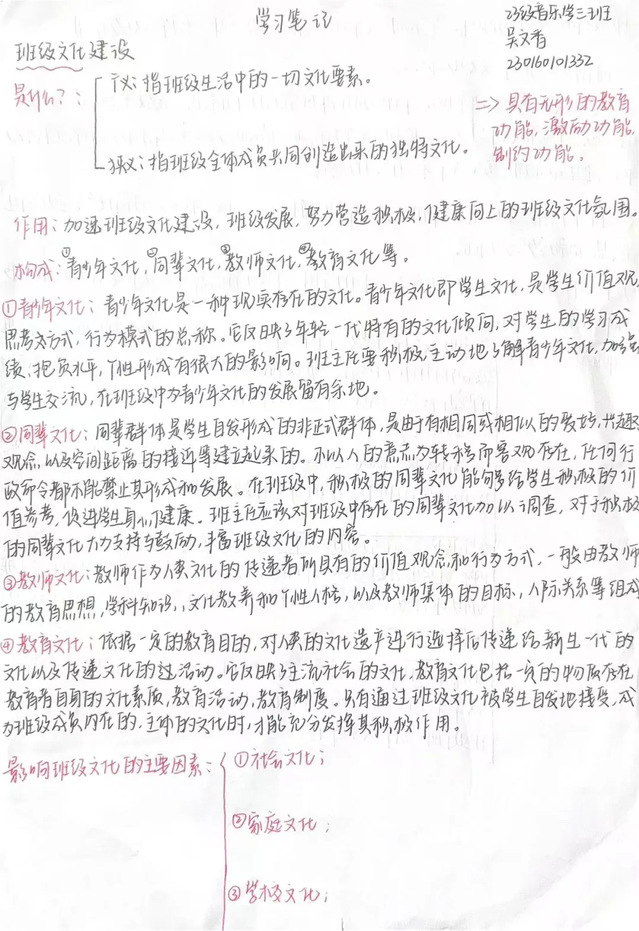 学习笔记
23级音乐学三班
吴文香
230160101332
班级文化建设
是什么?:
广义:指班级生活中的一切文化要素。
狭义:指班级全体成员共同创造出来的独特文化。
=> 具有无形的教育
功能,激励功能,
制约功能。
作用:加速班级文化建设,班级发展,努力营造积极,健康向上的班级文化氛围。
构成:①青少年文化,②同辈文化,③教师文化,④教育文化等。
①青少年文化:青少年文化是一种现实存在的文化。青少年文化即学生文化,是学生价值观
思考方式,行为模式的总称。它反映了年轻一代特有的文化倾向,对学生的学习成
绩、抱负水平,个性形成有很大的影响。班主任要积极主动地了解青少年文化,加强
与学生交流,在班级中为青少年文化的发展留有余地。
②同辈文化:同辈群体是学生自发形成的非正式群体,是由于有相同或相似的爱好,兴趣
观念,以及空间距离的接近等建立起来的。不以人的意志为转移而客观存在,任何行
政命令都不能禁止其形成和发展。在班级中,积极的同辈文化能够给学生积极的价
值参考,促进学生身心健康。班主任应该对班级中存在的同辈文化加以调查,对于积极
的同辈文化大力支持与鼓励,丰富班级文化的内容。
③教师文化:教师作为人类文化的传递者所具有的价值观念和行为方式,一般由教师
的教育思想,学科知识,文化教养和个性人格,以及教师集体的目标,人际关系等组成
④教育文化:依据一定的教育目的,对人类的文化遗产进行选择后传递给新生一代的
文化以及传递文化的过活动。它反映了主流社会的文化,教育文化包括一员的物质存在
教育者自身的文化素质,教育活动,教育制度。只有通过班级文化被学生自发地接受,成
为班级成员内在的,主体的文化时,才能充分发挥其积极作用。
影响班级文化的主要因素:
①社会文化;
②家庭文化;
③学校文化;